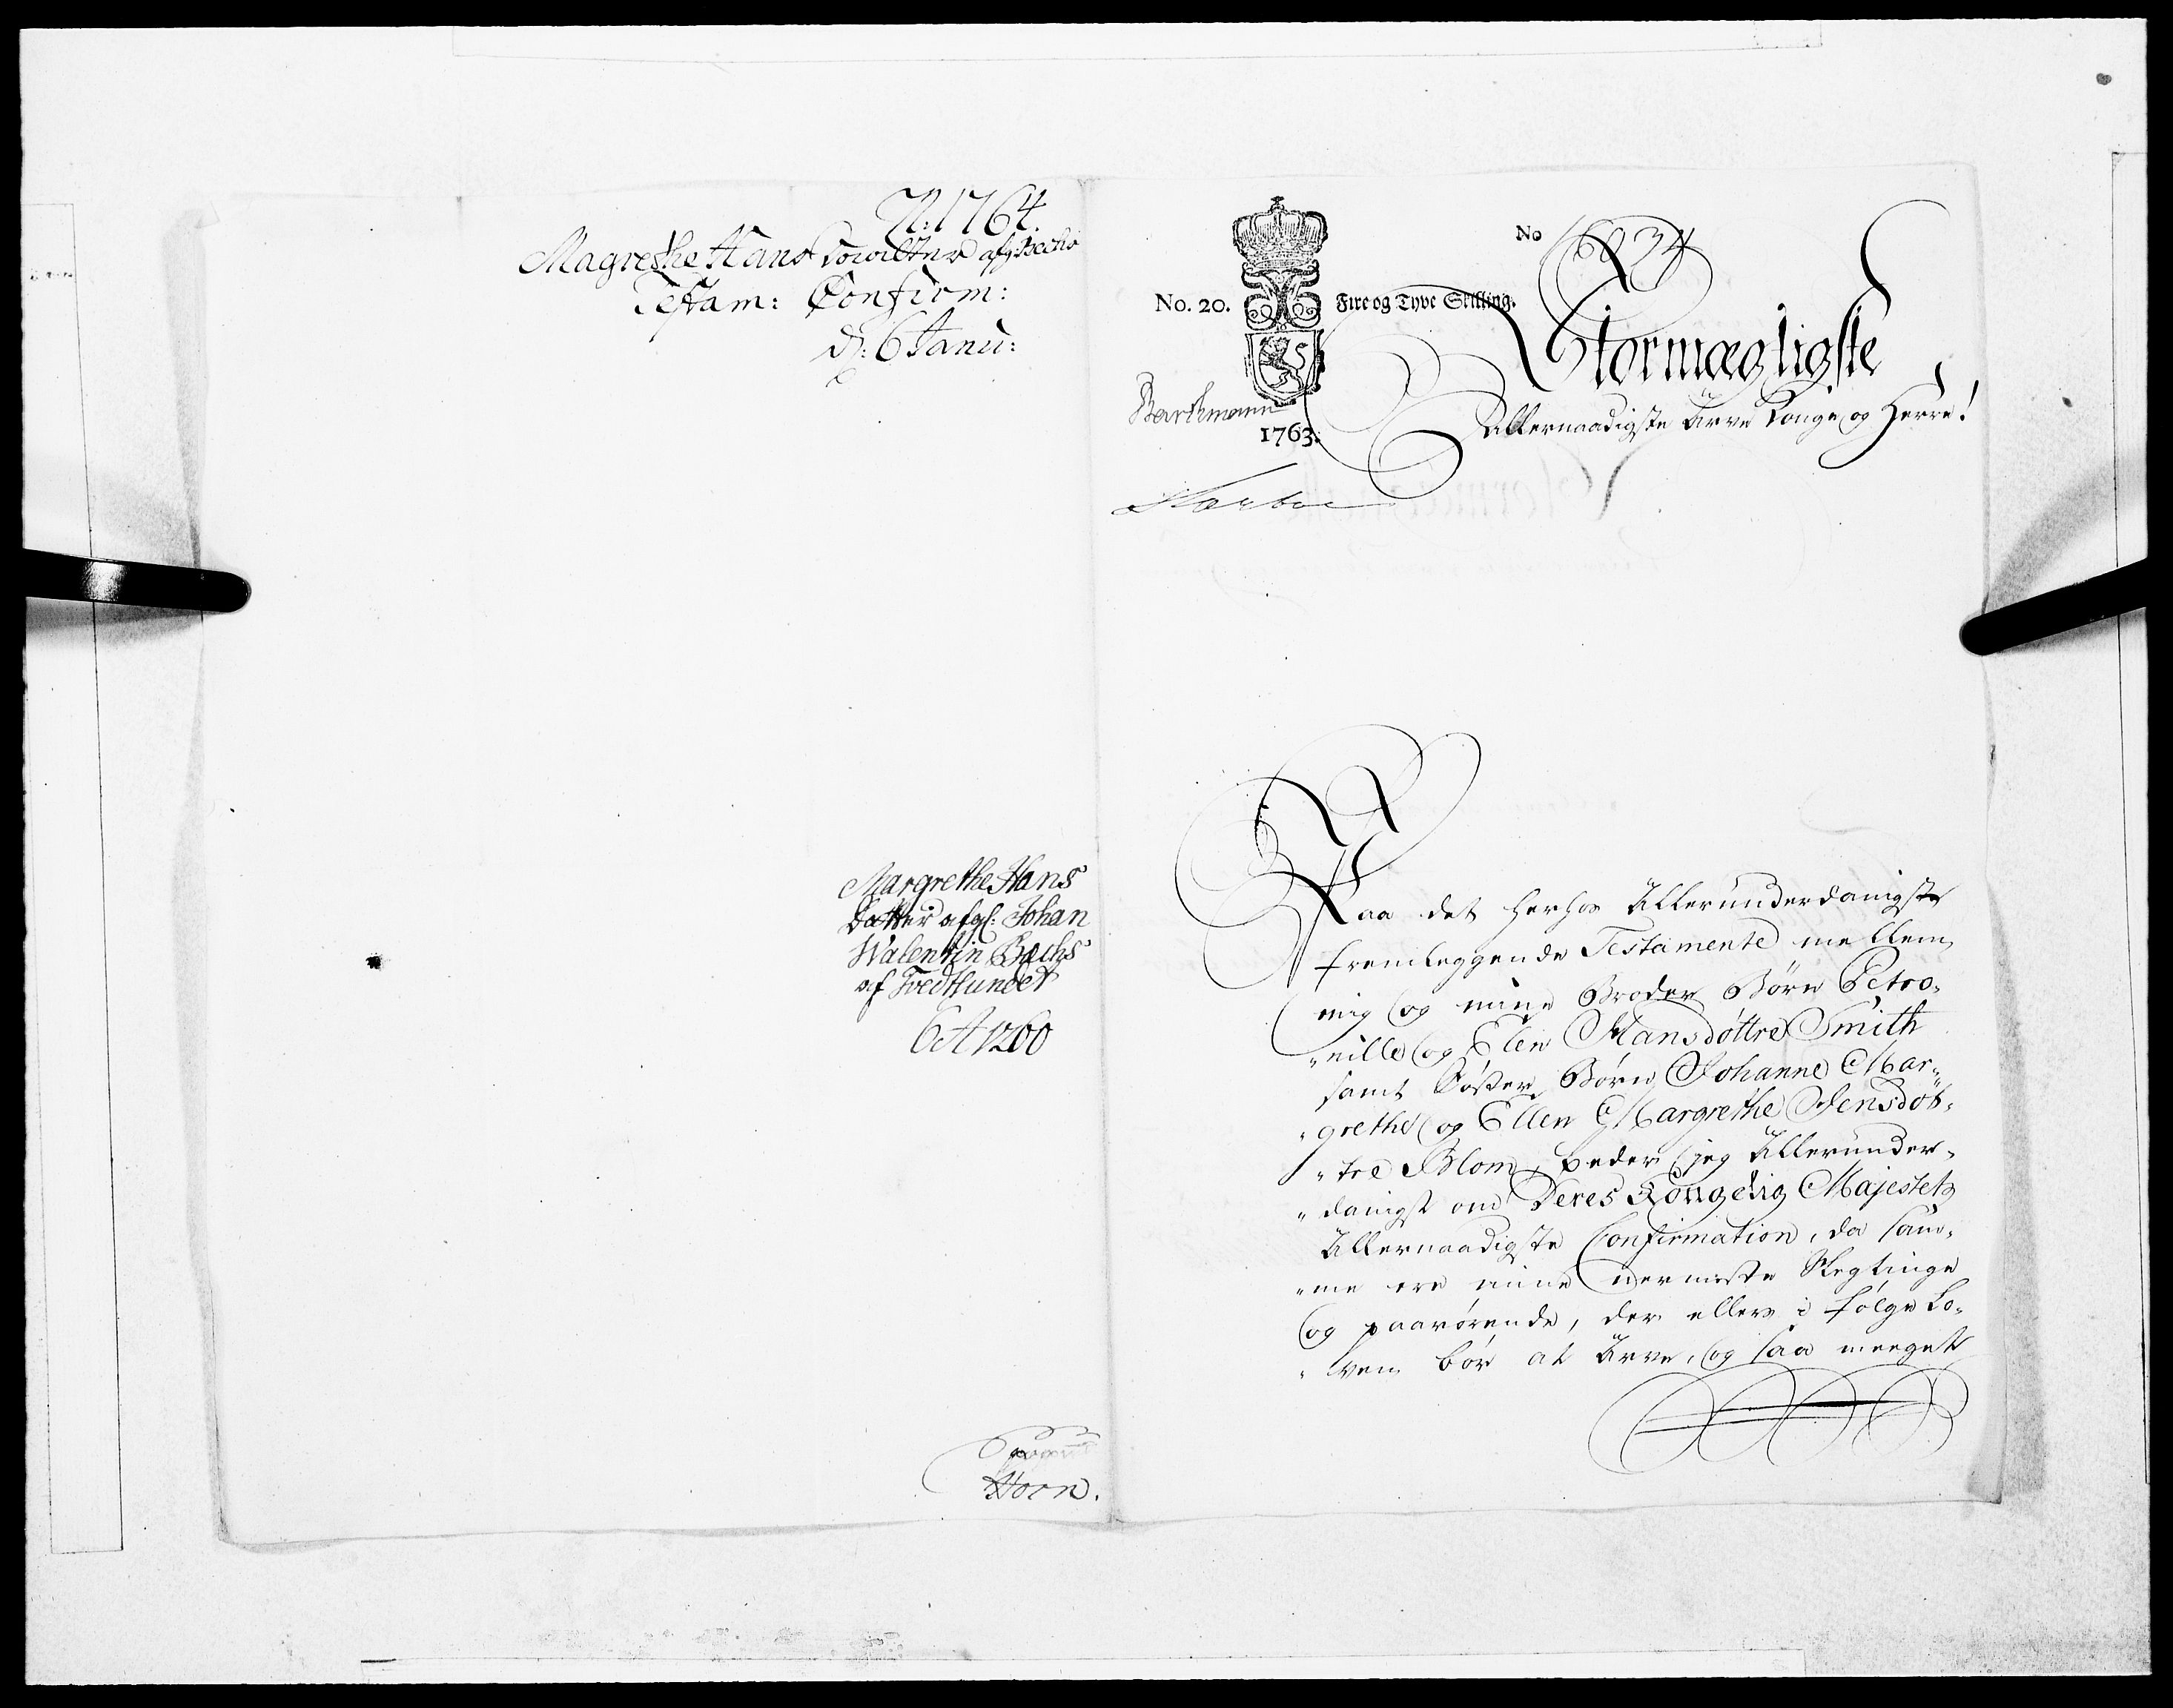 N: 1764.
Magrethe Hans Daatter afg: Bechs
Testam: Confirm:
d: 6 Janu:
Margrethe Hans
Datter afgl: Johan
Walentin Bechs
af Tvedtlundet
Horn.
No. 20.
Fire og Tyve Skilling.
No 6934
1763.
Stormægtigste
Allernaadigste Arve Konge og Herre!
Paa det herhos Allerunderdanigste
fremleggende Testamente mellem
mig og mine Broder Børn Petro-
"nille og Elen Hansdøttre Smith
samt Søster Børn Johanne Mar-
"grethe og Ellen Margrethe Jensdøt-
"tre Blom, beder jeg Allerunder-
"danigst om Deres Kongelig Majestets
Allernaadigste Confirmation, da sam-
"me ere mine nermeste Slegtinge
og paarørende, der ellers i følge Lo-
"ven bør at Arve, og saa meeget